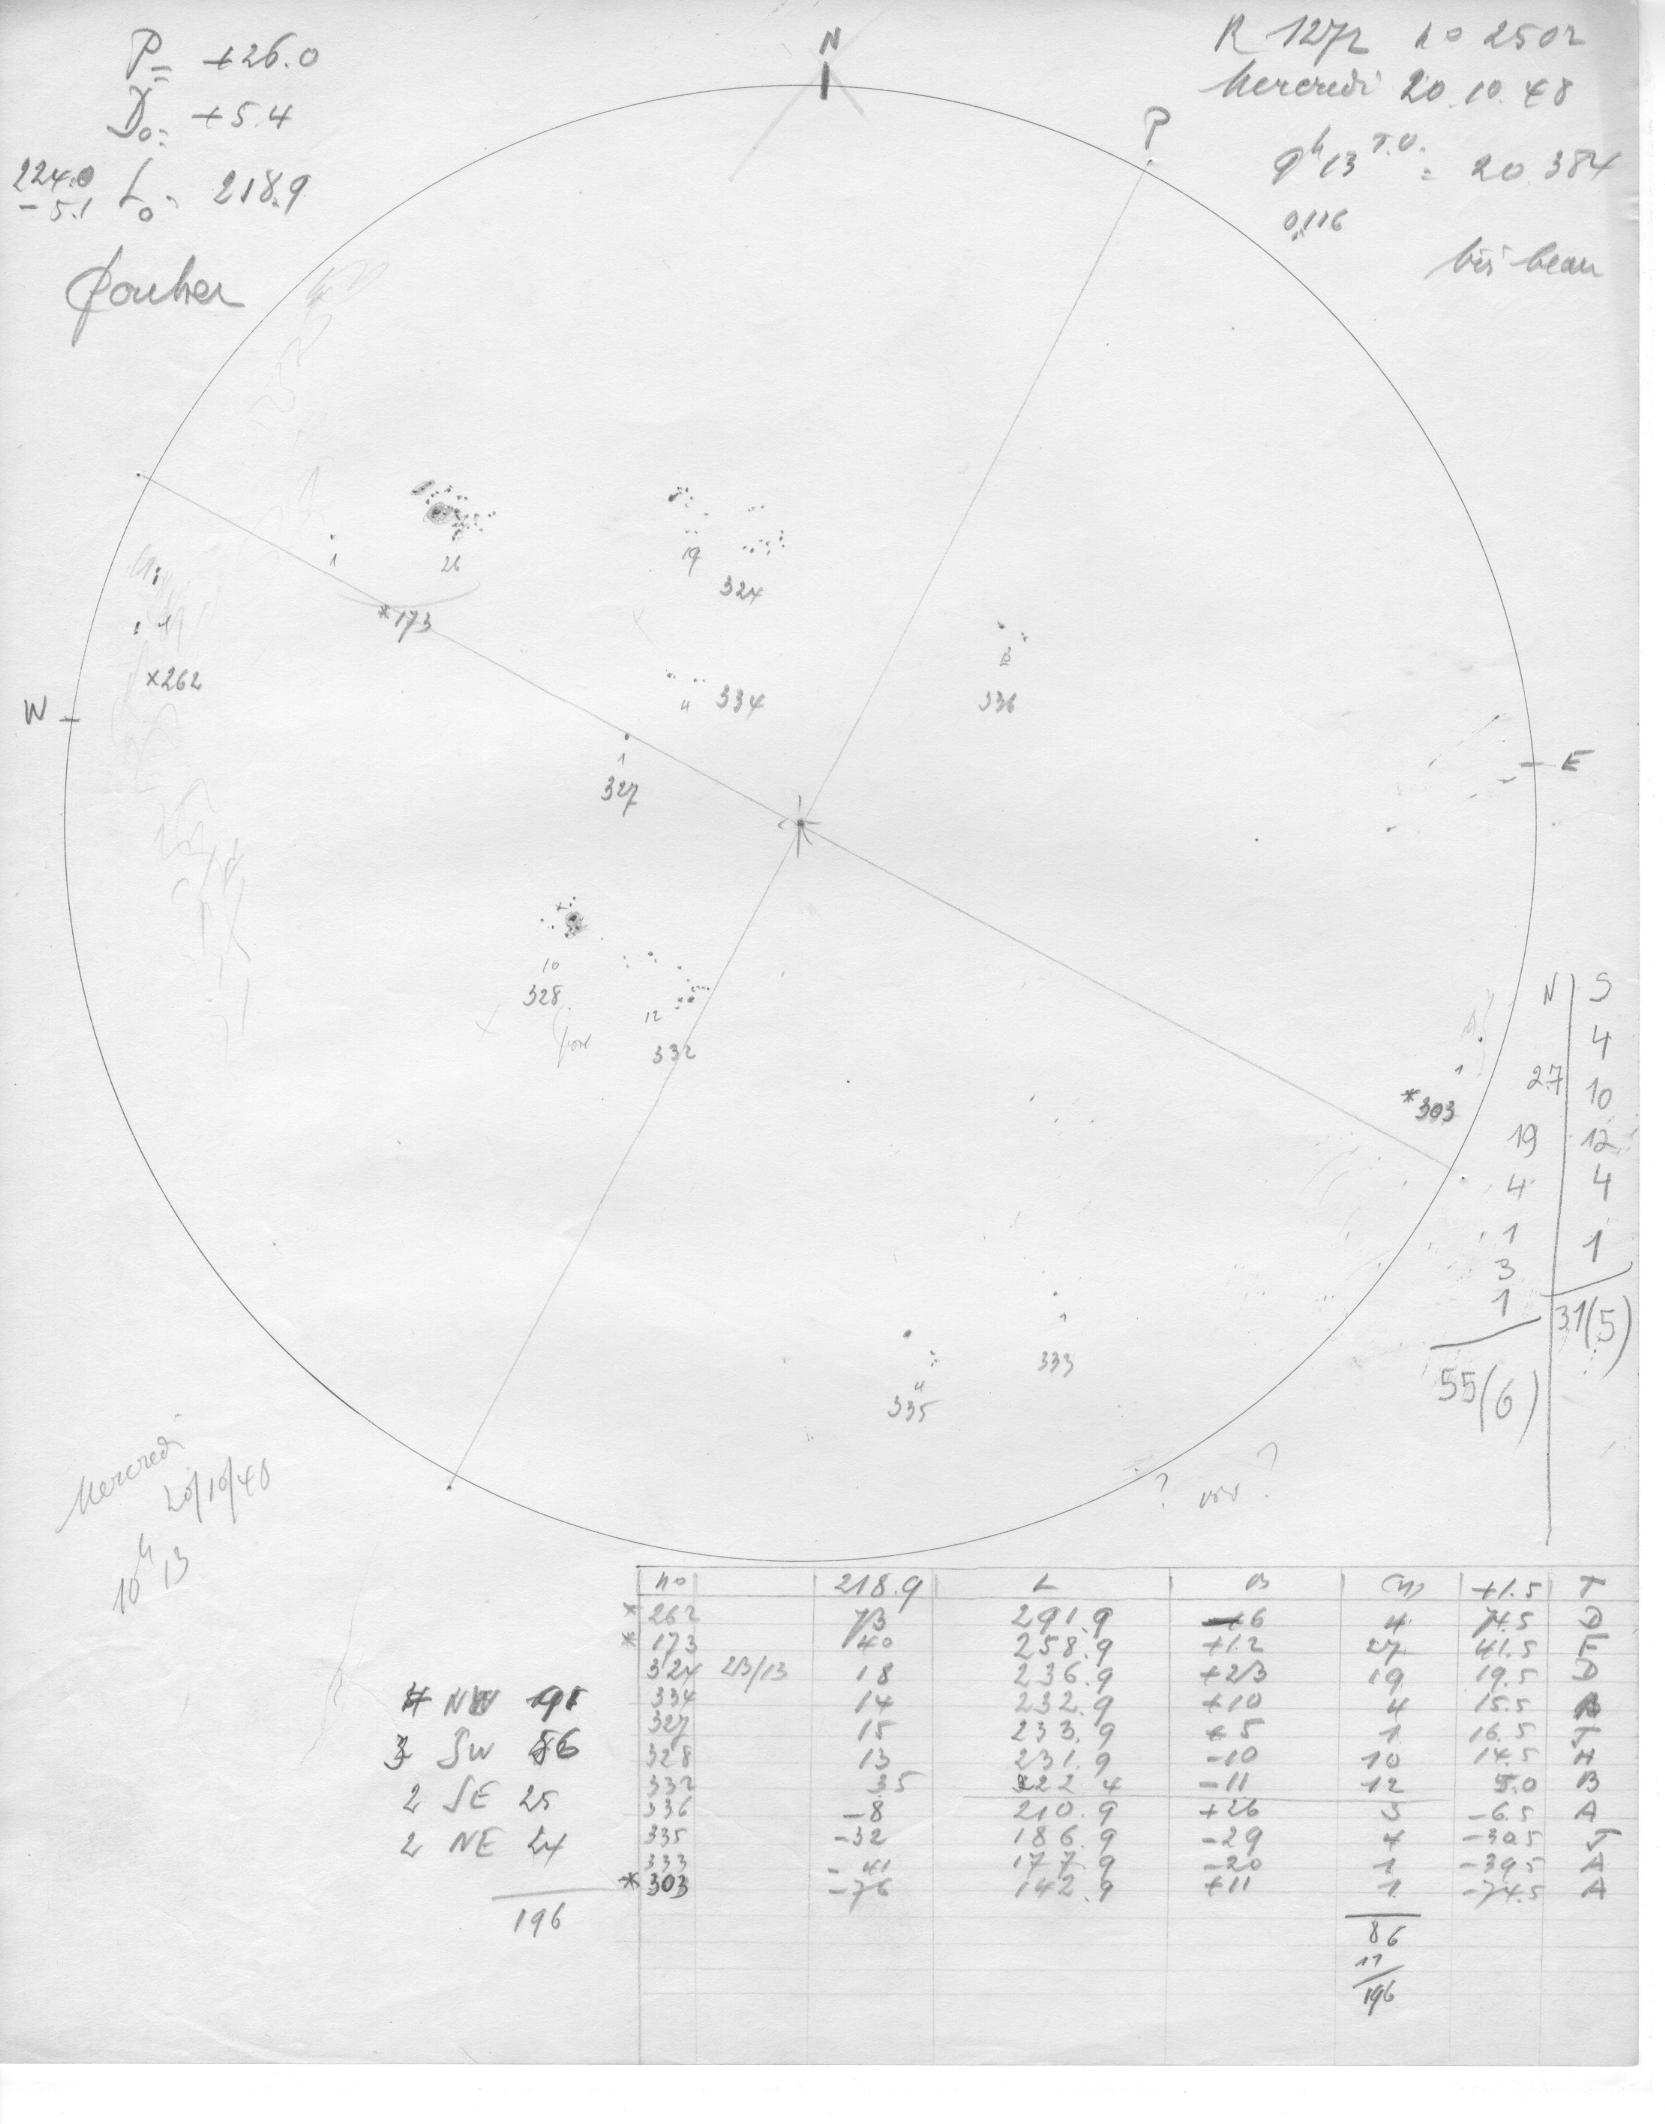 P = +26.0
D₀ = +5.4
224.0
-5.1
L₀ = 218.9
N
P
R 127r no 2502
Mercredi 20.10.48
9h13 T.U. = 20.384
0,116
très beau
1
26
*173
19
324
1
×262
W
4 334
3
336
E
1
327
10
328
12
332
1
*303
N | S
4
27 | 10
19 | 12
4 | 4
1 | 1
3
1 | 31(5)
55(6)
1
333
4
335
? ?
Mercredi
20/10/48
10h13
no | 218.9 | L | B | +1.5 | T
*262 | 73 | 291.9 | +6 | 4 | 74.5 | D
*173 | 40 | 258.9 | +12 | 27 | 41.5 | E
324 | 23/13 | 18 | 236.9 | +23 | 19 | 19.5 | D
334 | 14 | 232.9 | +10 | 4 | 15.5
327 | 15 | 233.9 | +5 | 1 | 16.5 | J
328 | 13 | 231.9 | -10 | 10 | 14.5 | H
332 | 3.5 | 222.4 | -11 | 12 | 5.0 | B
336 | -8 | 210.9 | +26 | 3 | -6.5 | A
335 | -32 | 186.9 | -29 | 4 | -30.5 | J
333 | -41 | 177.9 | -20 | 1 | -39.5 | A
*303 | -76 | 142.9 | +11 | 1 | -74.5 | A
4 NW 91
3 SW 56
2 SE 25
2 NE 24
196
86
11
196